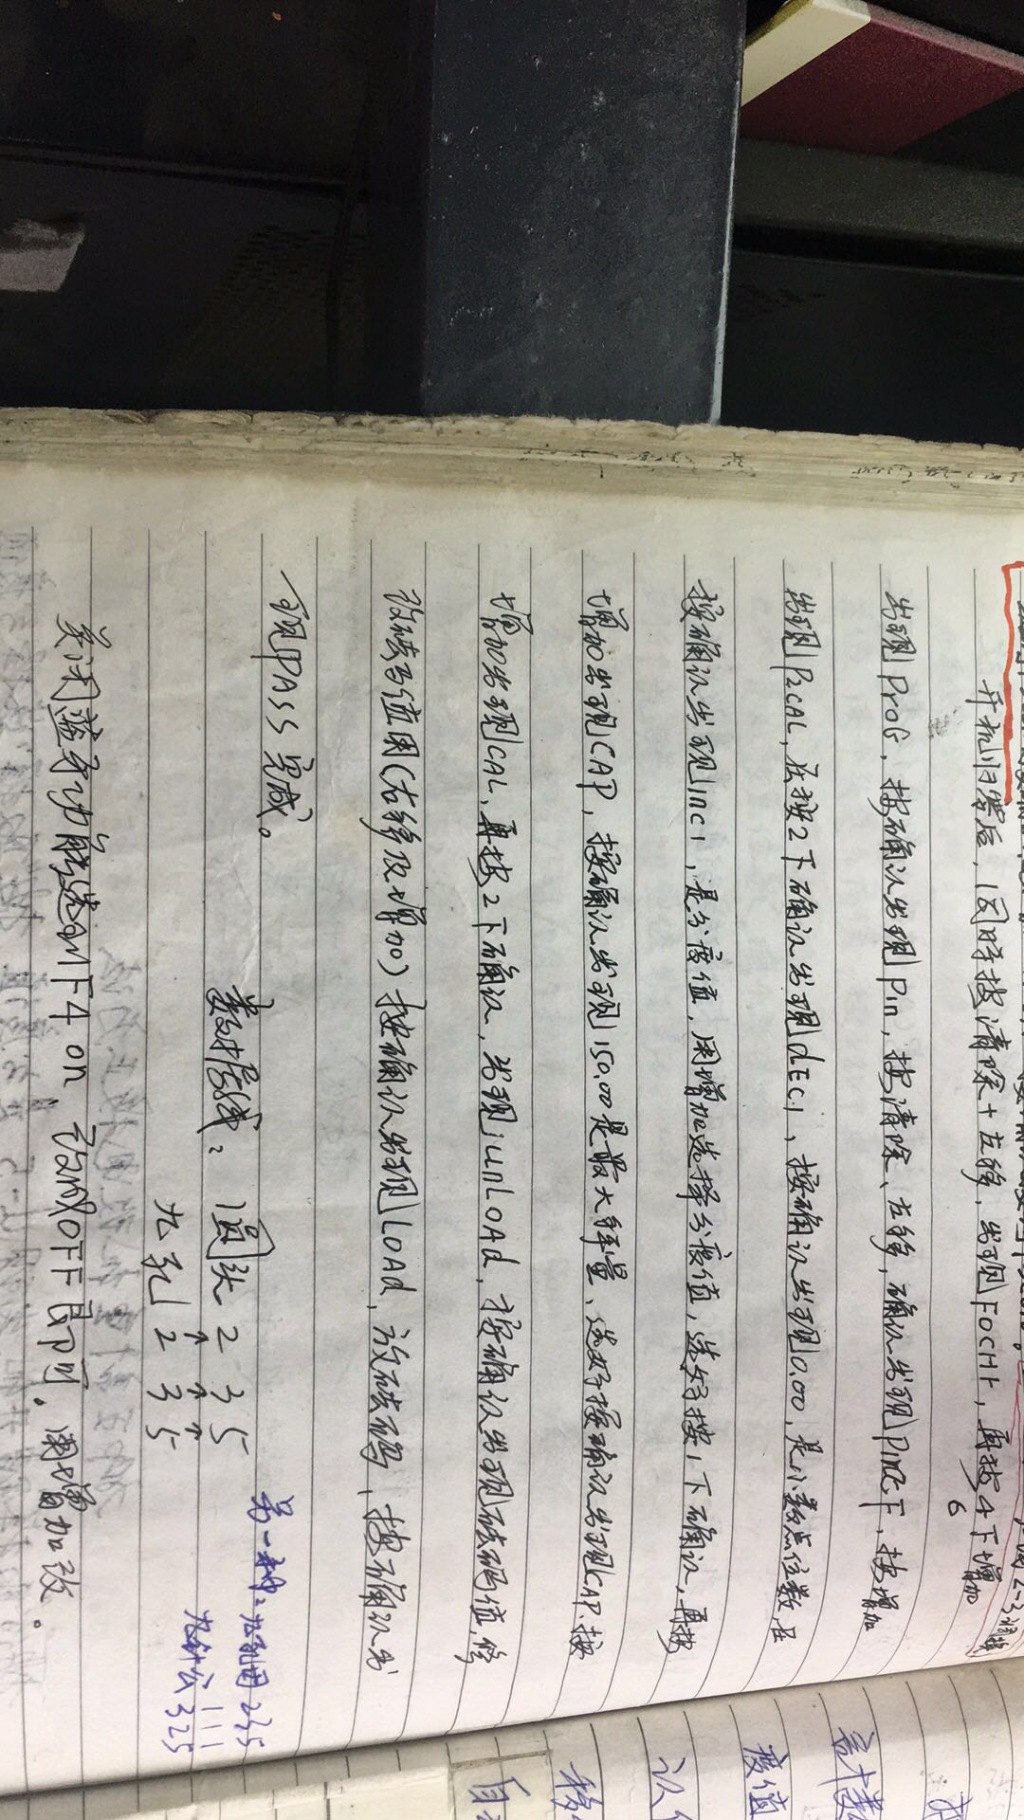 开机归零后，同时按清除+左移，出现FOCHr，再按4下增加
6
出现ProG，按确认出现Pin，按清除、左移，确认出现PinEF，按增加
出现P2CAL，在按2下确认出现dEC1，按确认出现0.00，是小数点位数，在
按确认出现inc1，是分度值，用增加选择分度值，选好按1下确认，再按
增加出现CAP，按确认出现150.00是最大秤量、选好按确认出现CAP.按
增加出现CAL，再按2下确认，出现unLOAd，按确认出现砝码值，修
改砝码值用（右移及增加）按确认出现LOAd，放砝码，按确认出
现PASS完成。
数据线：圆头 2 3 5
↑ ↑ ↑
九孔 2 3 5
另一种：九孔用235
| | |
九针公325
关闭蓝牙功能选到F4 on 改成OFF即可，用增加改。
度值